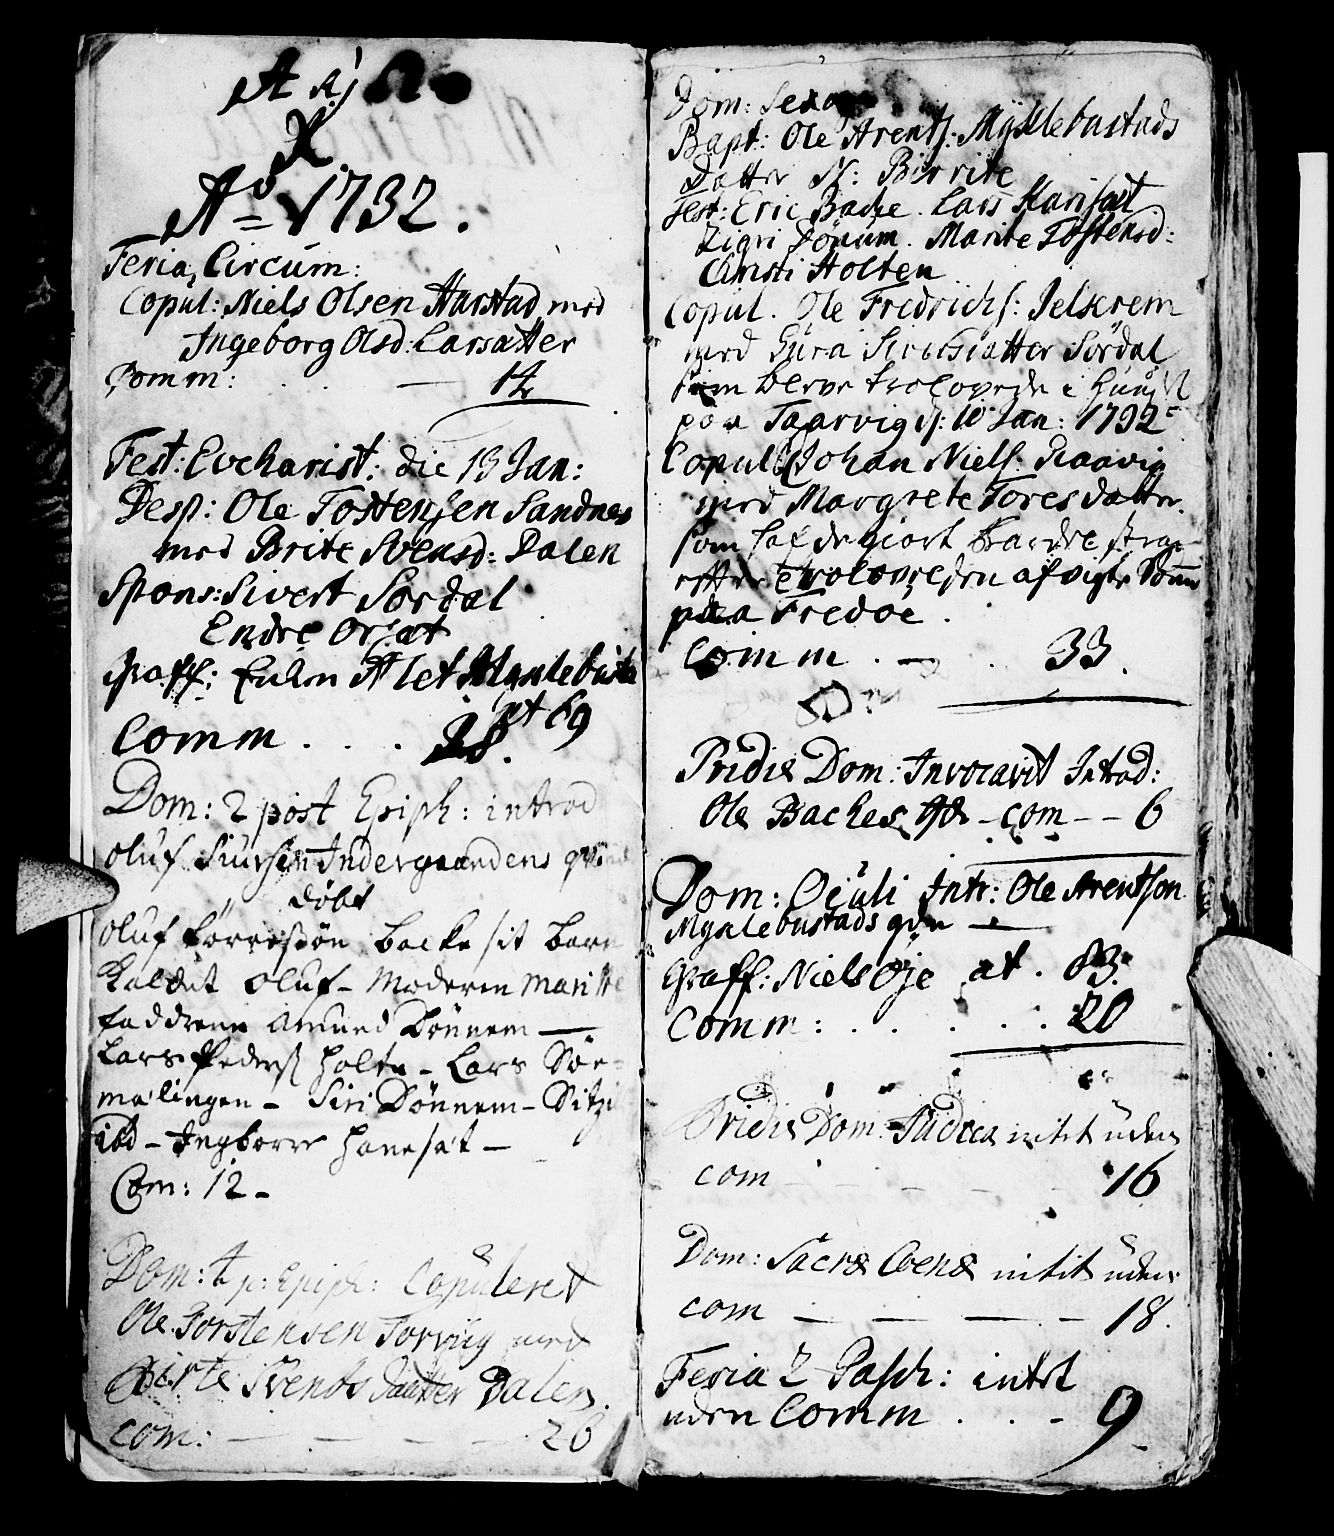 A & Ω
X
Aõ 1732.
Feria Circum:
Copul: Niels Olsen Harstad med
Ingeborg Olsd: Larsatter
Comm: . . — 14
Fest: Evcharist: die 13 Jan:
Desp: Ole Tostensen Sandnes
med Brite Svensd: Dalen
Spons: Sivert Sørdal
Endre Orsæt
Graff: Alet Myklebust
æt 69
Comm . . . 28.
Dom: 2 post Epiph: introd
Oluf Siursen Indergaardens
døbt
Oluf Backe sit barn
Kaldet Oluf – Moderen Maritte
faddrene Amund Dønnem —
Lars Peders: Holte – Lars Sør-
mælingen – Siri Dønnem – Sitzi
ibd – Ingborre Hanesæt –
Com: 12 –
Dom: 4 p: Epiph: Copuleret
Ole Torstensen Torvig med
Birte Svends daatter Dalen.
com: — — — — 26
Dom: Sexa
Bapt: Ole Arents: Myklebustads
Datter N: Birrite
Test: Eric Backe. Lars Karisæt
Zigri Dønum. Marite Tostensd:
Christi Holten
Copul. Ole Fredrichs: Jelkrem
med Gura Siverts datter Sørdal
som bleve trolovede i Huuset
paa Taarvig d: 10 Jan: 1732
Copul: Johan Niels: Raavig
med Margrete Toresdatter.
som hafde giort
efter trolovelsen af
paa Fredøe .
Comm . — . 33.
Pridie Dom: Invocavit Introd:
Ole Backes qv – com – – 6
Dom: Oculi Intr: Ole Arentson
Myklebustads qvn —
Graff: Niels Øje æt . 83.
Comm: . . . . . 20
Pridie Dom: Judica intet uden
com – – – – 16
Dom: Sacræ Coenæ intet uden
com — — — – 18.
Feria 2 Pasch: intet
uden Comm . . – 9